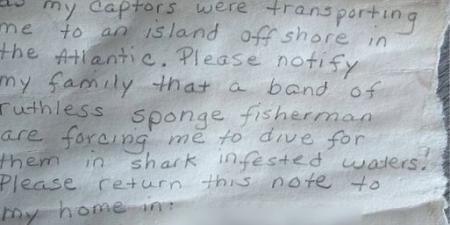 as my captors were transporting
me to an island offshore in
the Atlantic. Please notify
my family that a band of
ruthless sponge fisherman
are forcing me to dive for
them in shark infested waters!
Please return this note to
my home in: